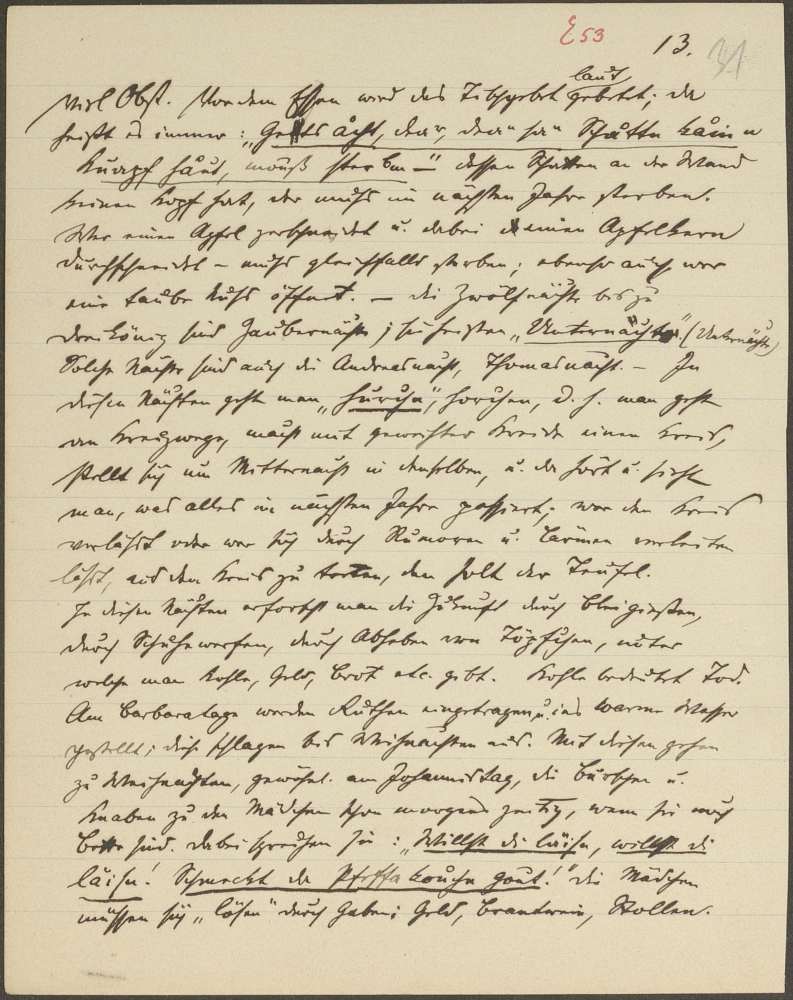 E 53 13. 31
viel Obst. Vor dem Essen wird das Tischgebet laut gebetet; da
heißt es immer: „Gebts åcht, dear, dear sei Schåttn kåin
Kuapf håut, mouß sterbm —" dessen Schatten an der Wand
keinen Kopf hat, der muß im nächsten Jahre sterben.
Wer einen Apfel zerschneidet u. dabei einen Apfelkern
durchschneidet – muß gleichfalls sterben; ebenso auch wer
eine taube Nuß öffnet. — Die Zwölfnächte bis zu
Dreikönig sind Zaubernächte; sie heißen „Unternächte" (Unternächte)
Solche Nächte sind auch die Andreasnacht, Thomasnacht. – In
diesen Nächten geht man „hurchn", horchen, d. h. man geht
an Kreuzwege, macht mit geweihter Kreide einen Kreis,
stellt sich um Mitternacht in denselben, u. da hört u. sieht
man, was alles im nächsten Jahre passiert; wer den Kreis
verläßt oder wer sich durch Rumoren u. Lärmen verleiten
läßt, aus dem Kreis zu treten, den holt der Teufel.
In diesen Nächten erforscht man die Zukunft durch Bleigießen,
durch Schuhwerfen, durch Abheben von Töpfchen, unter
welche man Kohle, Geld, Brot etc. gibt. Kohle bedeutet Tod.
Am Barbaratage werden Ruthen eingetragen u. ins warme Wasser
gestellt; diese schlagen bis Weihnachten aus. Mit diesen gehen
zu Weihnachten, gewöhnl. am Johannistag, die Burschen u.
Knaben zu den Mädchen schon morgens zeitig, wenn sie noch
im Bette sind. Dabei sprechen sie: „Willst di läisn, willst di
läisn! Schmeckt da Pfeffakouchn gout!" Die Mädchen
müssen sich „lösen" durch Gaben: Geld, Brantwein, Stollen.